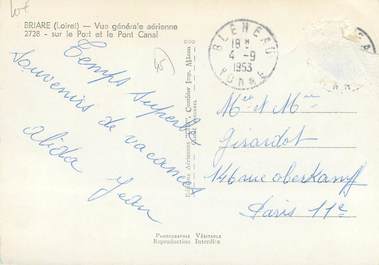 BRIARE (Loiret) — Vue générale aérienne
2728 - sur le Port et le Pont Canal
Temps superbe
souvenirs de vacances
Alida Jean
BLENEAU
18 H
4 - 9
1953
YONNE
Mr et Mme
Girardot
146 rue oberkampf
Paris 11e
PHOTOGRAPHIE VÉRITABLE
Reproduction Interdite